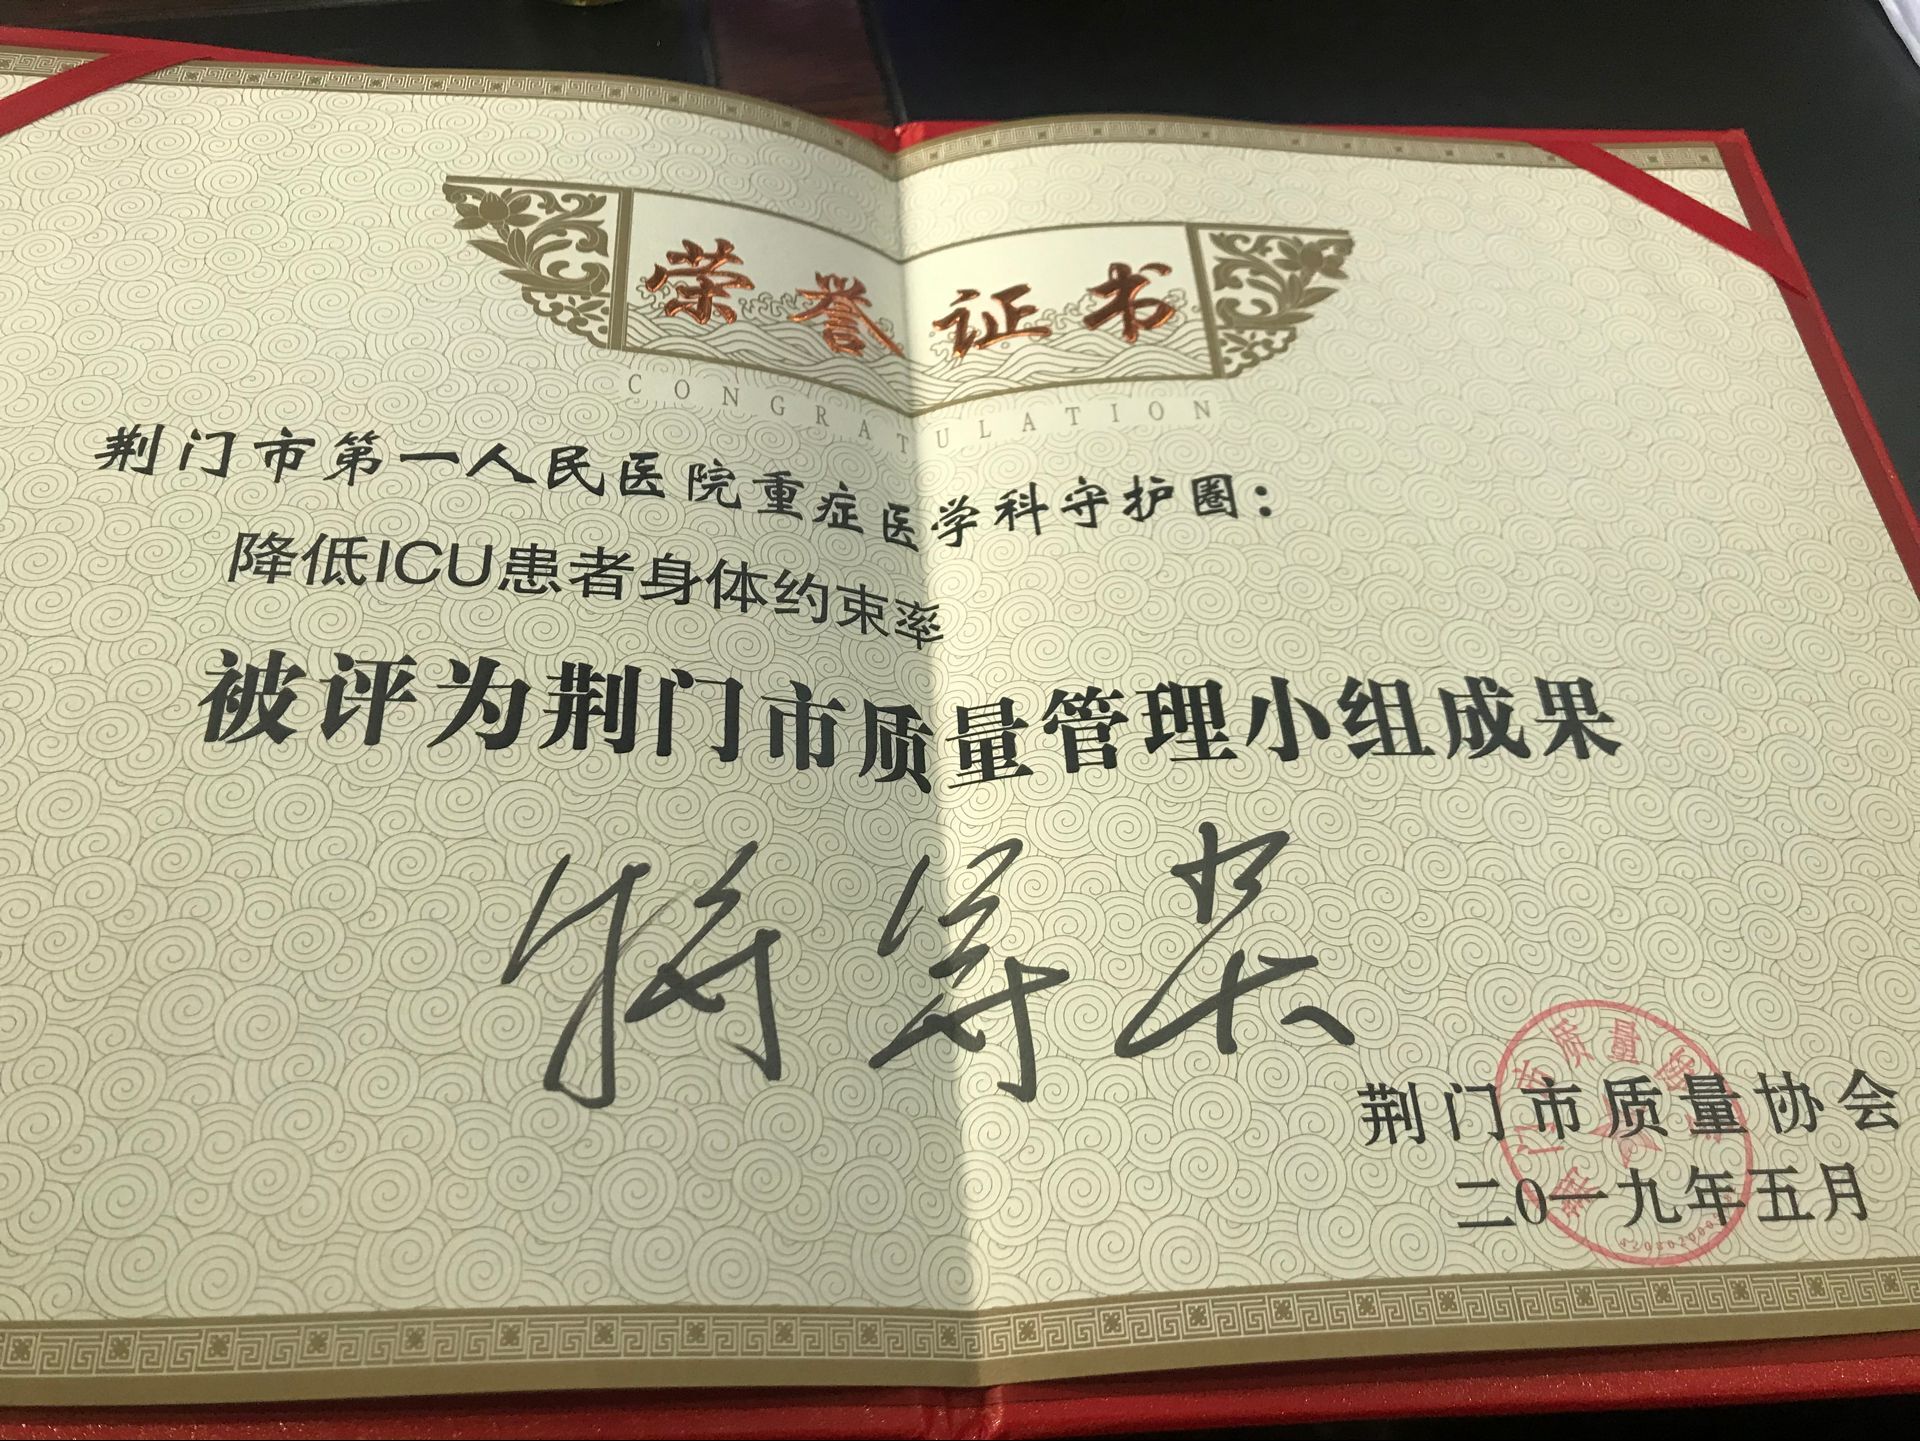 荣誉证书
CONGRATULATION
荆门市第一人民医院重症医学科守护圈：
降低ICU患者身体约束率
被评为荆门市质量管理小组成果
荆门市质量协会
二0一九年五月
荆门市质量协会